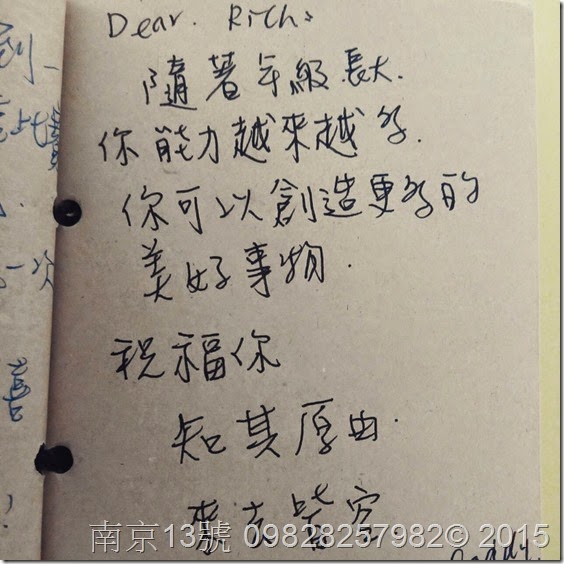 到一
此
一次
Dear. Rich:
隨著年級長大.
你能力越來越多.
你可以創造更多的
美好事物.
祝福你
知其原由.
皆容
南京13號 09828257982© 2015
Daddy.